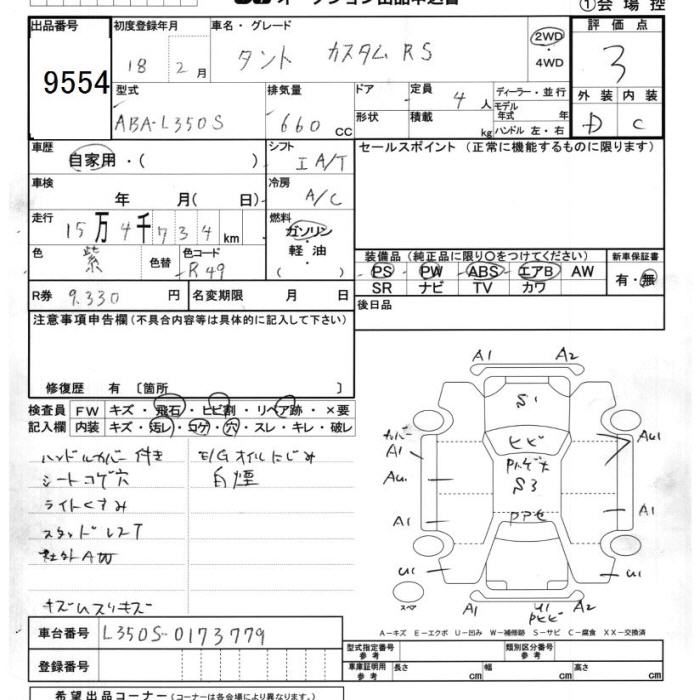 オークション出品申込書
①会場控
出品番号
9554
初度登録年月
18 2月
車名・グレード
タント カスタムRS
2WD
・
4WD
評価点
3
型式
ABA-L350S
排気量
660 CC
ドア
形状
定員
4人
積載
kg
ディーラー・並行
モデル年式 年
ハンドル 左・右
外装 内装
D C
車歴
自家用・( )
シフト
I A/T
セールスポイント (正常に機能するものに限ります)
車検
年 月( 日)
冷房
A/C
走行
15万4千734km
燃料
ガソリン
・
軽油
( )
色
紫
色替
色コード
R49
装備品 (純正品に限り〇をつけてください)
PS・PW・ABS・エアB・AW
SR ナビ TV カワ
新車保証書
有・無
R券 9.330円
名変期限 月 日
後日品
注意事項申告欄(不具合内容等は具体的に記入して下さい)
修復歴 有 〔箇所 〕
検査員記入欄
FW キズ・飛石・ヒビ割・リペア跡・×要
内装 キズ・汚レ・コゲ・穴・スレ・キレ・破レ
ハンドルカバー付き
シートコゲ穴
ライトくすみ
スタッドレスT
社外AW
E/Gオイルにじみ
白煙
A1 A2
S1
カバー
A1
ヒビ
AU1
S3
A1 A1
U1 U1
スペア
A1 U1 A2
A-キズ E-エクボ U-凹み W-補修跡 S-サビ C-腐食 XX-交換済
車台番号
L350S-0173779
登録番号
型式指定番号
参考
類別区分番号
参考
車庫証明用
参考
長さ cm
幅 cm
高さ cm
希望出品コーナー(コーナーは各会場により異なります。)